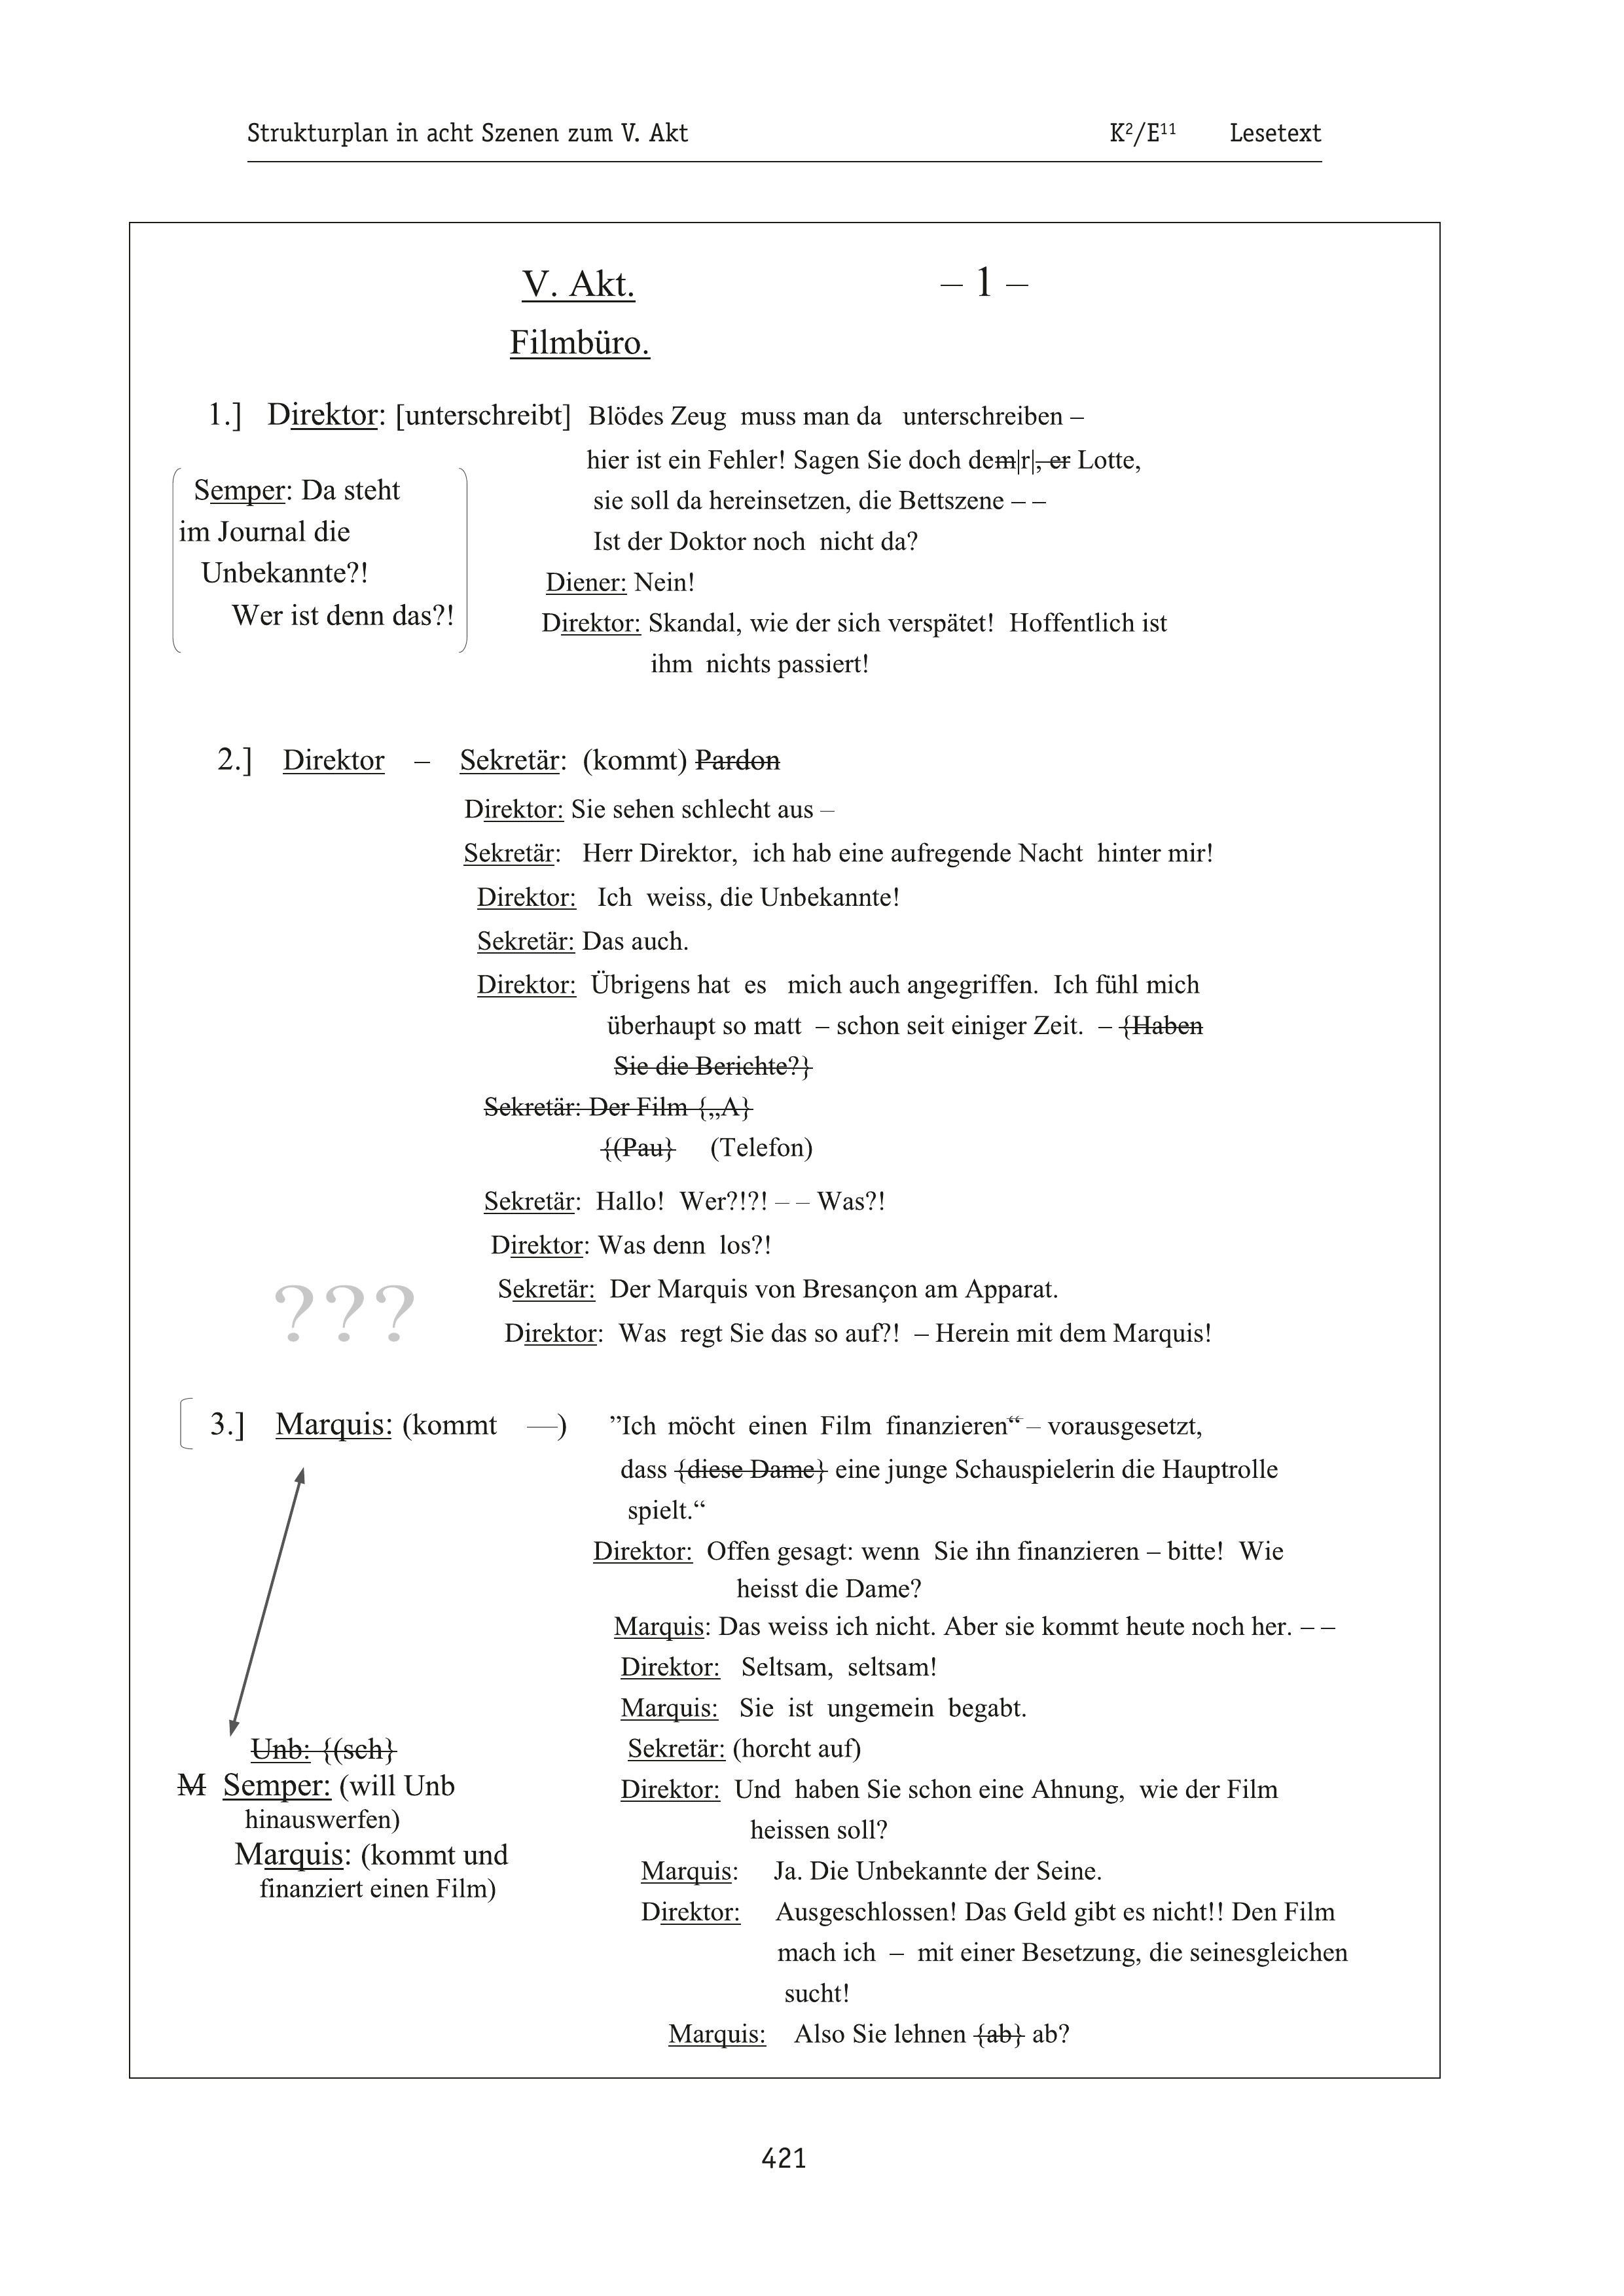 Strukturplan in acht Szenen zum V. Akt K²/E¹¹ Lesetext
V. Akt. – 1 –
Filmbüro.
1.] Direktor: [unterschreibt] Blödes Zeug muss man da unterschreiben –
hier ist ein Fehler! Sagen Sie doch dem|r|, er Lotte,
sie soll da hereinsetzen, die Bettszene – –
Ist der Doktor noch nicht da?
Diener: Nein!
Direktor: Skandal, wie der sich verspätet! Hoffentlich ist
ihm nichts passiert!
Semper: Da steht
im Journal die
Unbekannte?!
Wer ist denn das?!
2.] Direktor – Sekretär: (kommt) Pardon
Direktor: Sie sehen schlecht aus –
Sekretär: Herr Direktor, ich hab eine aufregende Nacht hinter mir!
Direktor: Ich weiss, die Unbekannte!
Sekretär: Das auch.
Direktor: Übrigens hat es mich auch angegriffen. Ich fühl mich
überhaupt so matt – schon seit einiger Zeit. – {Haben
Sie die Berichte?}
Sekretär: Der Film {„A}
{(Pau} (Telefon)
Sekretär: Hallo! Wer?!?! – – Was?!
Direktor: Was denn los?!
Sekretär: Der Marquis von Bresançon am Apparat.
Direktor: Was regt Sie das so auf?! – Herein mit dem Marquis!
???
3.] Marquis: (kommt —) ”Ich möcht einen Film finanzieren“ – vorausgesetzt,
dass {diese Dame} eine junge Schauspielerin die Hauptrolle
spielt.“
Direktor: Offen gesagt: wenn Sie ihn finanzieren – bitte! Wie
heisst die Dame?
Marquis: Das weiss ich nicht. Aber sie kommt heute noch her. – –
Direktor: Seltsam, seltsam!
Marquis: Sie ist ungemein begabt.
Sekretär: (horcht auf)
Direktor: Und haben Sie schon eine Ahnung, wie der Film
heissen soll?
Marquis: Ja. Die Unbekannte der Seine.
Direktor: Ausgeschlossen! Das Geld gibt es nicht!! Den Film
mach ich – mit einer Besetzung, die seinesgleichen
sucht!
Marquis: Also Sie lehnen {ab} ab?
Unb: {(sch}
M Semper: (will Unb
hinauswerfen)
Marquis: (kommt und
finanziert einen Film)
421